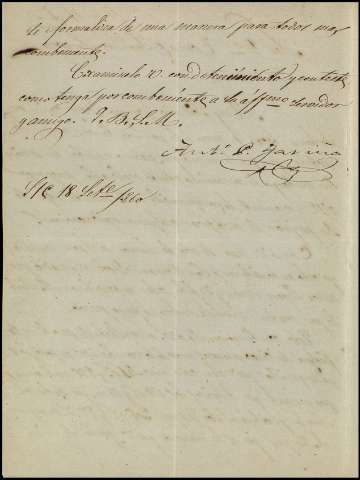 se formalisa de una manera para todos mas
combeniente.
Examinelo V. con detenimiento y conteste
como tenga por combeniente a su affmo servidor
y amigo. Q. B. S. M.
Anto. P.
S/C 18 Sete /860